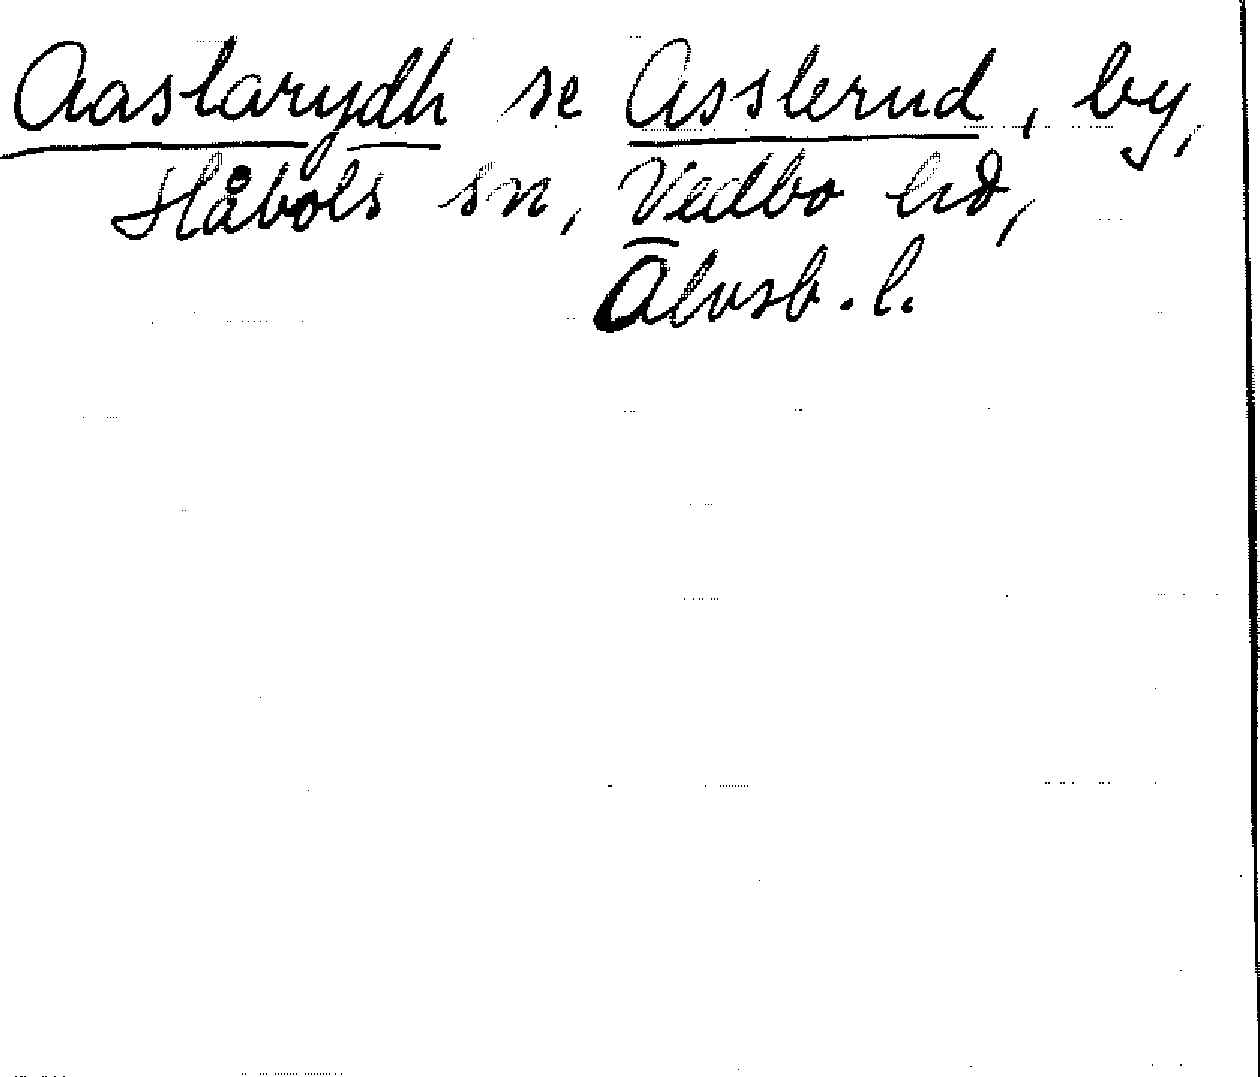 Aaslarydh se Asslerud, by,
Håbols sn, Vedbo hd,
Älvsb. l.